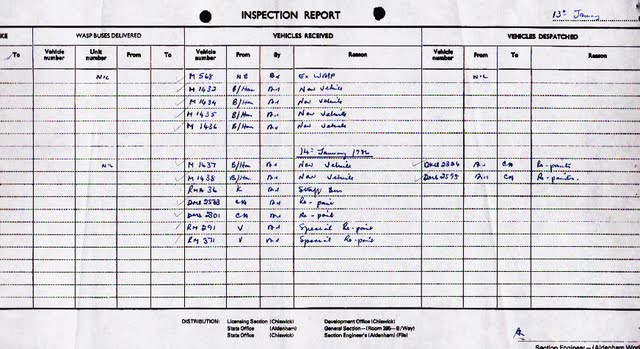 INSPECTION REPORT 13th January
KE WASP BUSES DELIVERED VEHICLES RECEIVED VEHICLES DESPATCHED
To Vehicle number Unit number From To Vehicle number From By Reason Vehicle number From To Reason
NIL M 568 Ex WASP NIL
M 1432 B/Han New Vehicle
M 1434 B/Han New Vehicle
M 1435 B/Han New Vehicle
M 1436 B/Han New Vehicle
14th January 1982
NIL M 1437 B/Han New Vehicle CH Re-paints
M 1438 B/Han New Vehicle DMS 2599 CH Re-paints.
RMA 36 K Staff Bus
DMS CH Re-paint
DMS 2301 CH Re-paint
RM 291 V Special Re-paint
RM 371 V Special Re-paint
DISTRIBUTION: Licensing Section (Chiswick) Development Office (Chiswick)
Stats Office (Aldenham) General Section—(Room 295—B/Way)
Stats Office (Chiswick) Section Engineer's (Aldenham) (File)
Section Engineer—(Aldenham Wor